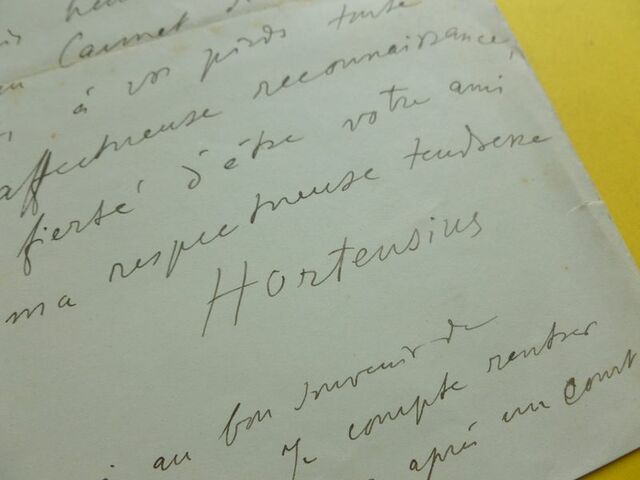 Carnet d
à vos pieds toute
affectueuse reconnaissance,
fierté d'être votre ami
ma respectueuse tendresse
Hortensius
au bon souvenir de
Je compte rentrer
après un court